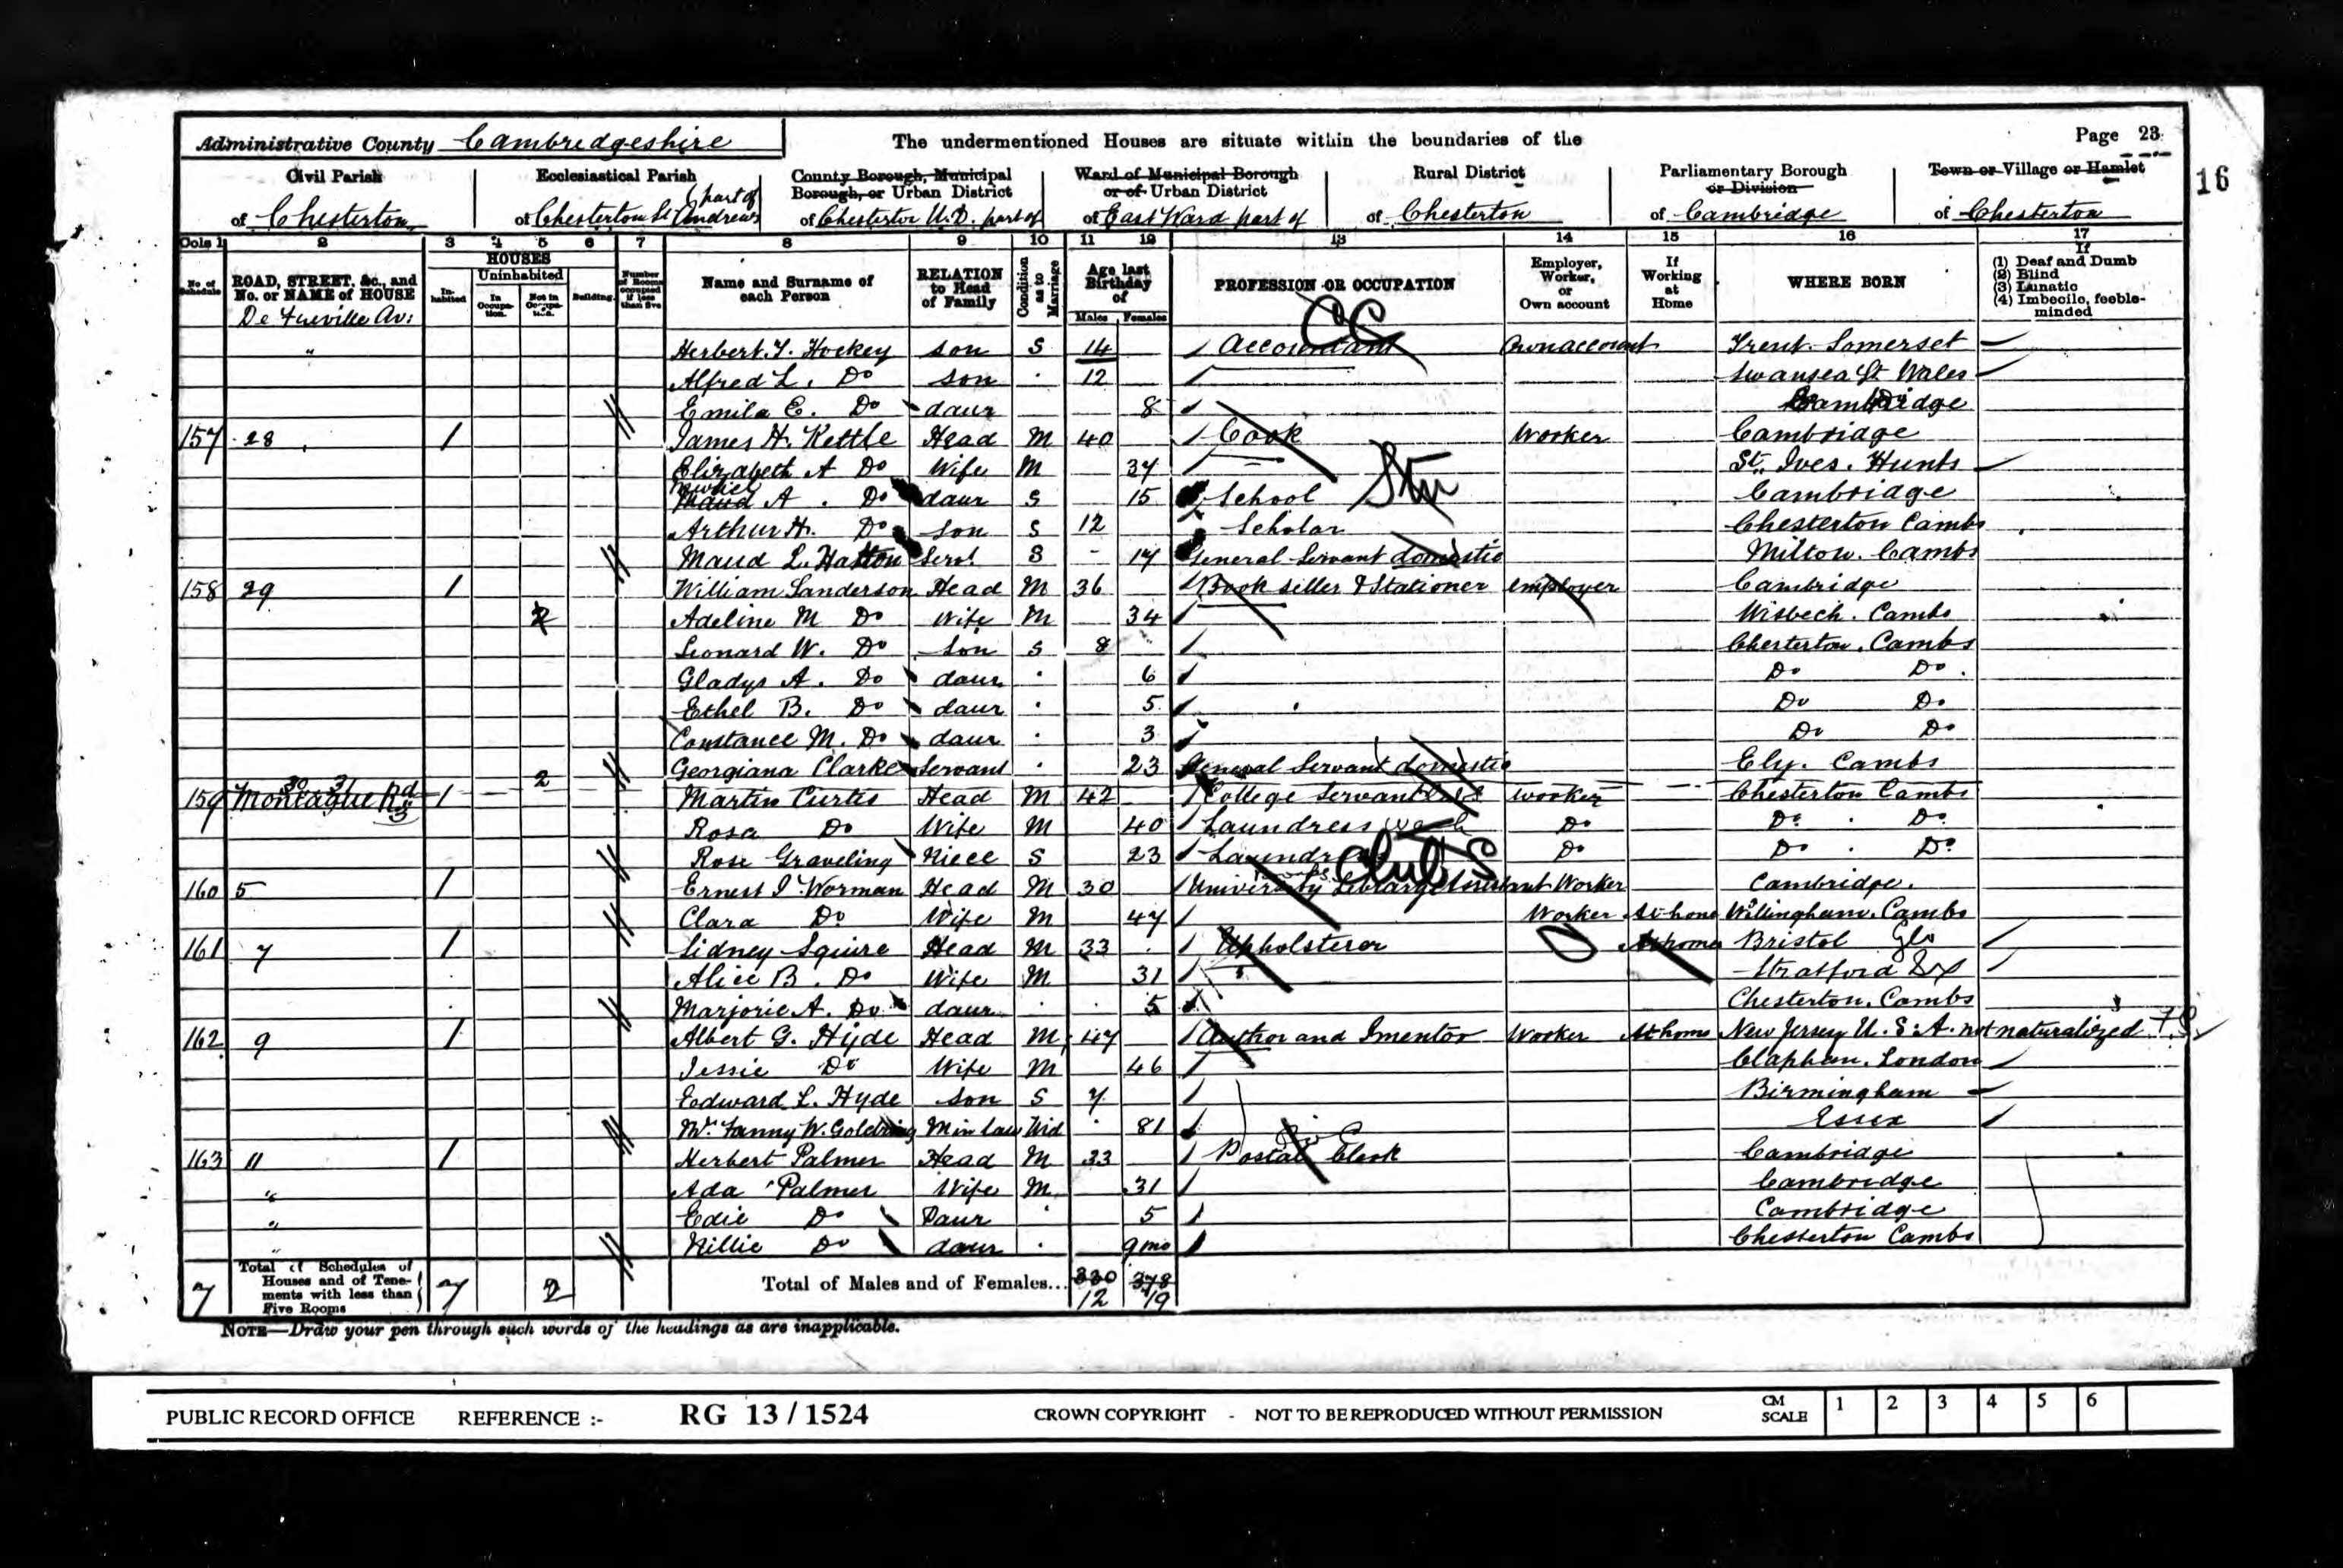 Administrative County Cambridgeshire The undermentioned Houses are situate within the boundaries of the Page 23
16
Civil Parish Ecclesiastical Parish County Borough, Municipal Borough, or Urban District Ward of Municipal Borough or of Urban District Rural District Parliamentary Borough or Division Town or Village or Hamlet
of Chesterton of Chesterton St Andrews (part of of Chesterton U.D. part of of East Ward part of of Chesterton of Cambridge of Chesterton
Cols 1 2 3 4 5 6 7 8 9 10 11 12 13 14 15 16 17
No. of Schedule ROAD, STREET, &c., and No. or NAME of HOUSE HOUSES Inhabited Uninhabited In Occupation. Not in Occupation. Building. Number of Rooms occupied if less than five Name and Surname of each Person RELATION to Head of Family Condition as to Marriage Age last Birthday of Males Females PROFESSION OR OCCUPATION Employer, Worker, or Own account If Working at Home WHERE BORN If (1) Deaf and Dumb (2) Blind (3) Lunatic (4) Imbecile, feeble-minded
CC
" Herbert Hockey son S 14 Accountant Own account Trent. Somerset
Alfred L. Do son 12 Swansea Wales
Emila E. Do daur 8 Cambridge
157 28 1 James H. Kettle Head M 40 Cook Worker Cambridge
Elizabeth A Do Wife M 37 St. Ives. Hunts
Muriel Maud A. Do daur S 15 School Cambridge
Arthur H. Do son S 12 Scholar Chesterton Cambs
Maud L. Hatton Servt S - 17 General Servant domestic Milton. Cambs
158 29 1 William Sanderson Head M 36 Book seller & Stationer employer Cambridge
2 Adeline M Do Wife M 34 Wisbech. Cambs
Leonard W. Do Son S 8 Chesterton. Cambs
Gladys A. Do daur 6 Do Do
Ethel B. Do daur 5 Do Do
Constance M. Do daur 3 Do Do
30 31 2 Georgiana Clarke Servant 23 General Servant domestic Ely. Cambs
159 Montague Rd 3 1 Martin Curtis Head M 42 College Servant worker Chesterton Cambs
Rosa Do Wife M 40 Laundress Do Do Do
Rose Graveling Niece S 23 Do Do Do
Club S
160 5 1 Ernest J. Worman Head M 30 University Library Assistant Worker Cambridge.
Clara Do Wife M 47 Worker At home Willingham. Cambs
161 7 1 Sidney Squire Head M 33 Upholsterer At home Bristol Glo
Alice B. Do Wife M 31 Stratford
Marjorie A. Do daur 5 Chesterton. Cambs
162 9 1 Albert G. Hyde Head M 47 Author and Inventor Worker At home New Jersey U.S.A. not naturalized F.S.
Jessie Do Wife M 46 Clapham. London
Edward L. Hyde son S 7 Birmingham
Mrs Fanny W. Goldring M in law Wid 81 Essex
163 11 1 Herbert Palmer Head M 33 Postal Clerk Cambridge
" Ada Palmer Wife M 31 Cambridge
" Edie Do Daur 5 Cambridge
" Nillie Do daur 9 mo Chesterton Cambs
7 Total of Schedules of Houses and of Tenements with less than Five Rooms 7 2 Total of Males and of Females... 330 378
12 19
NOTE—Draw your pen through such words of the headings as are inapplicable.
PUBLIC RECORD OFFICE REFERENCE :- RG 13/1524 CROWN COPYRIGHT - NOT TO BE REPRODUCED WITHOUT PERMISSION CM SCALE 1 2 3 4 5 6